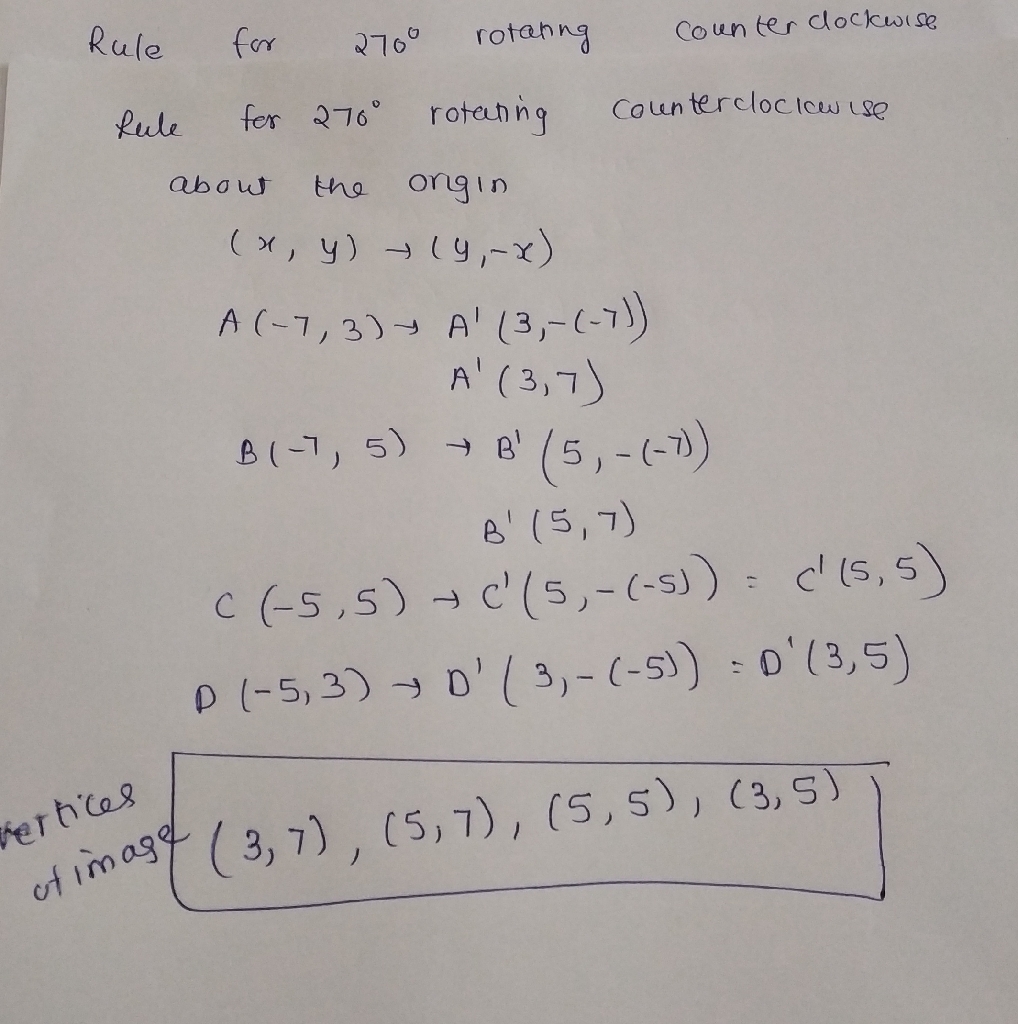 Rule for 270° rotating counter clockwise
Rule for 270° rotating counterclockwise
about the origin
(x, y) → (y, -x)
A (-7, 3) → A' (3, -(-7))
A' (3, 7)
B (-7, 5) → B' (5, -(-7))
B' (5, 7)
C (-5, 5) → C' (5, -(-5)) = C' (5, 5)
D (-5, 3) → D' (3, -(-5)) = D' (3, 5)
vertices
of image
(3, 7), (5, 7), (5, 5), (3, 5)